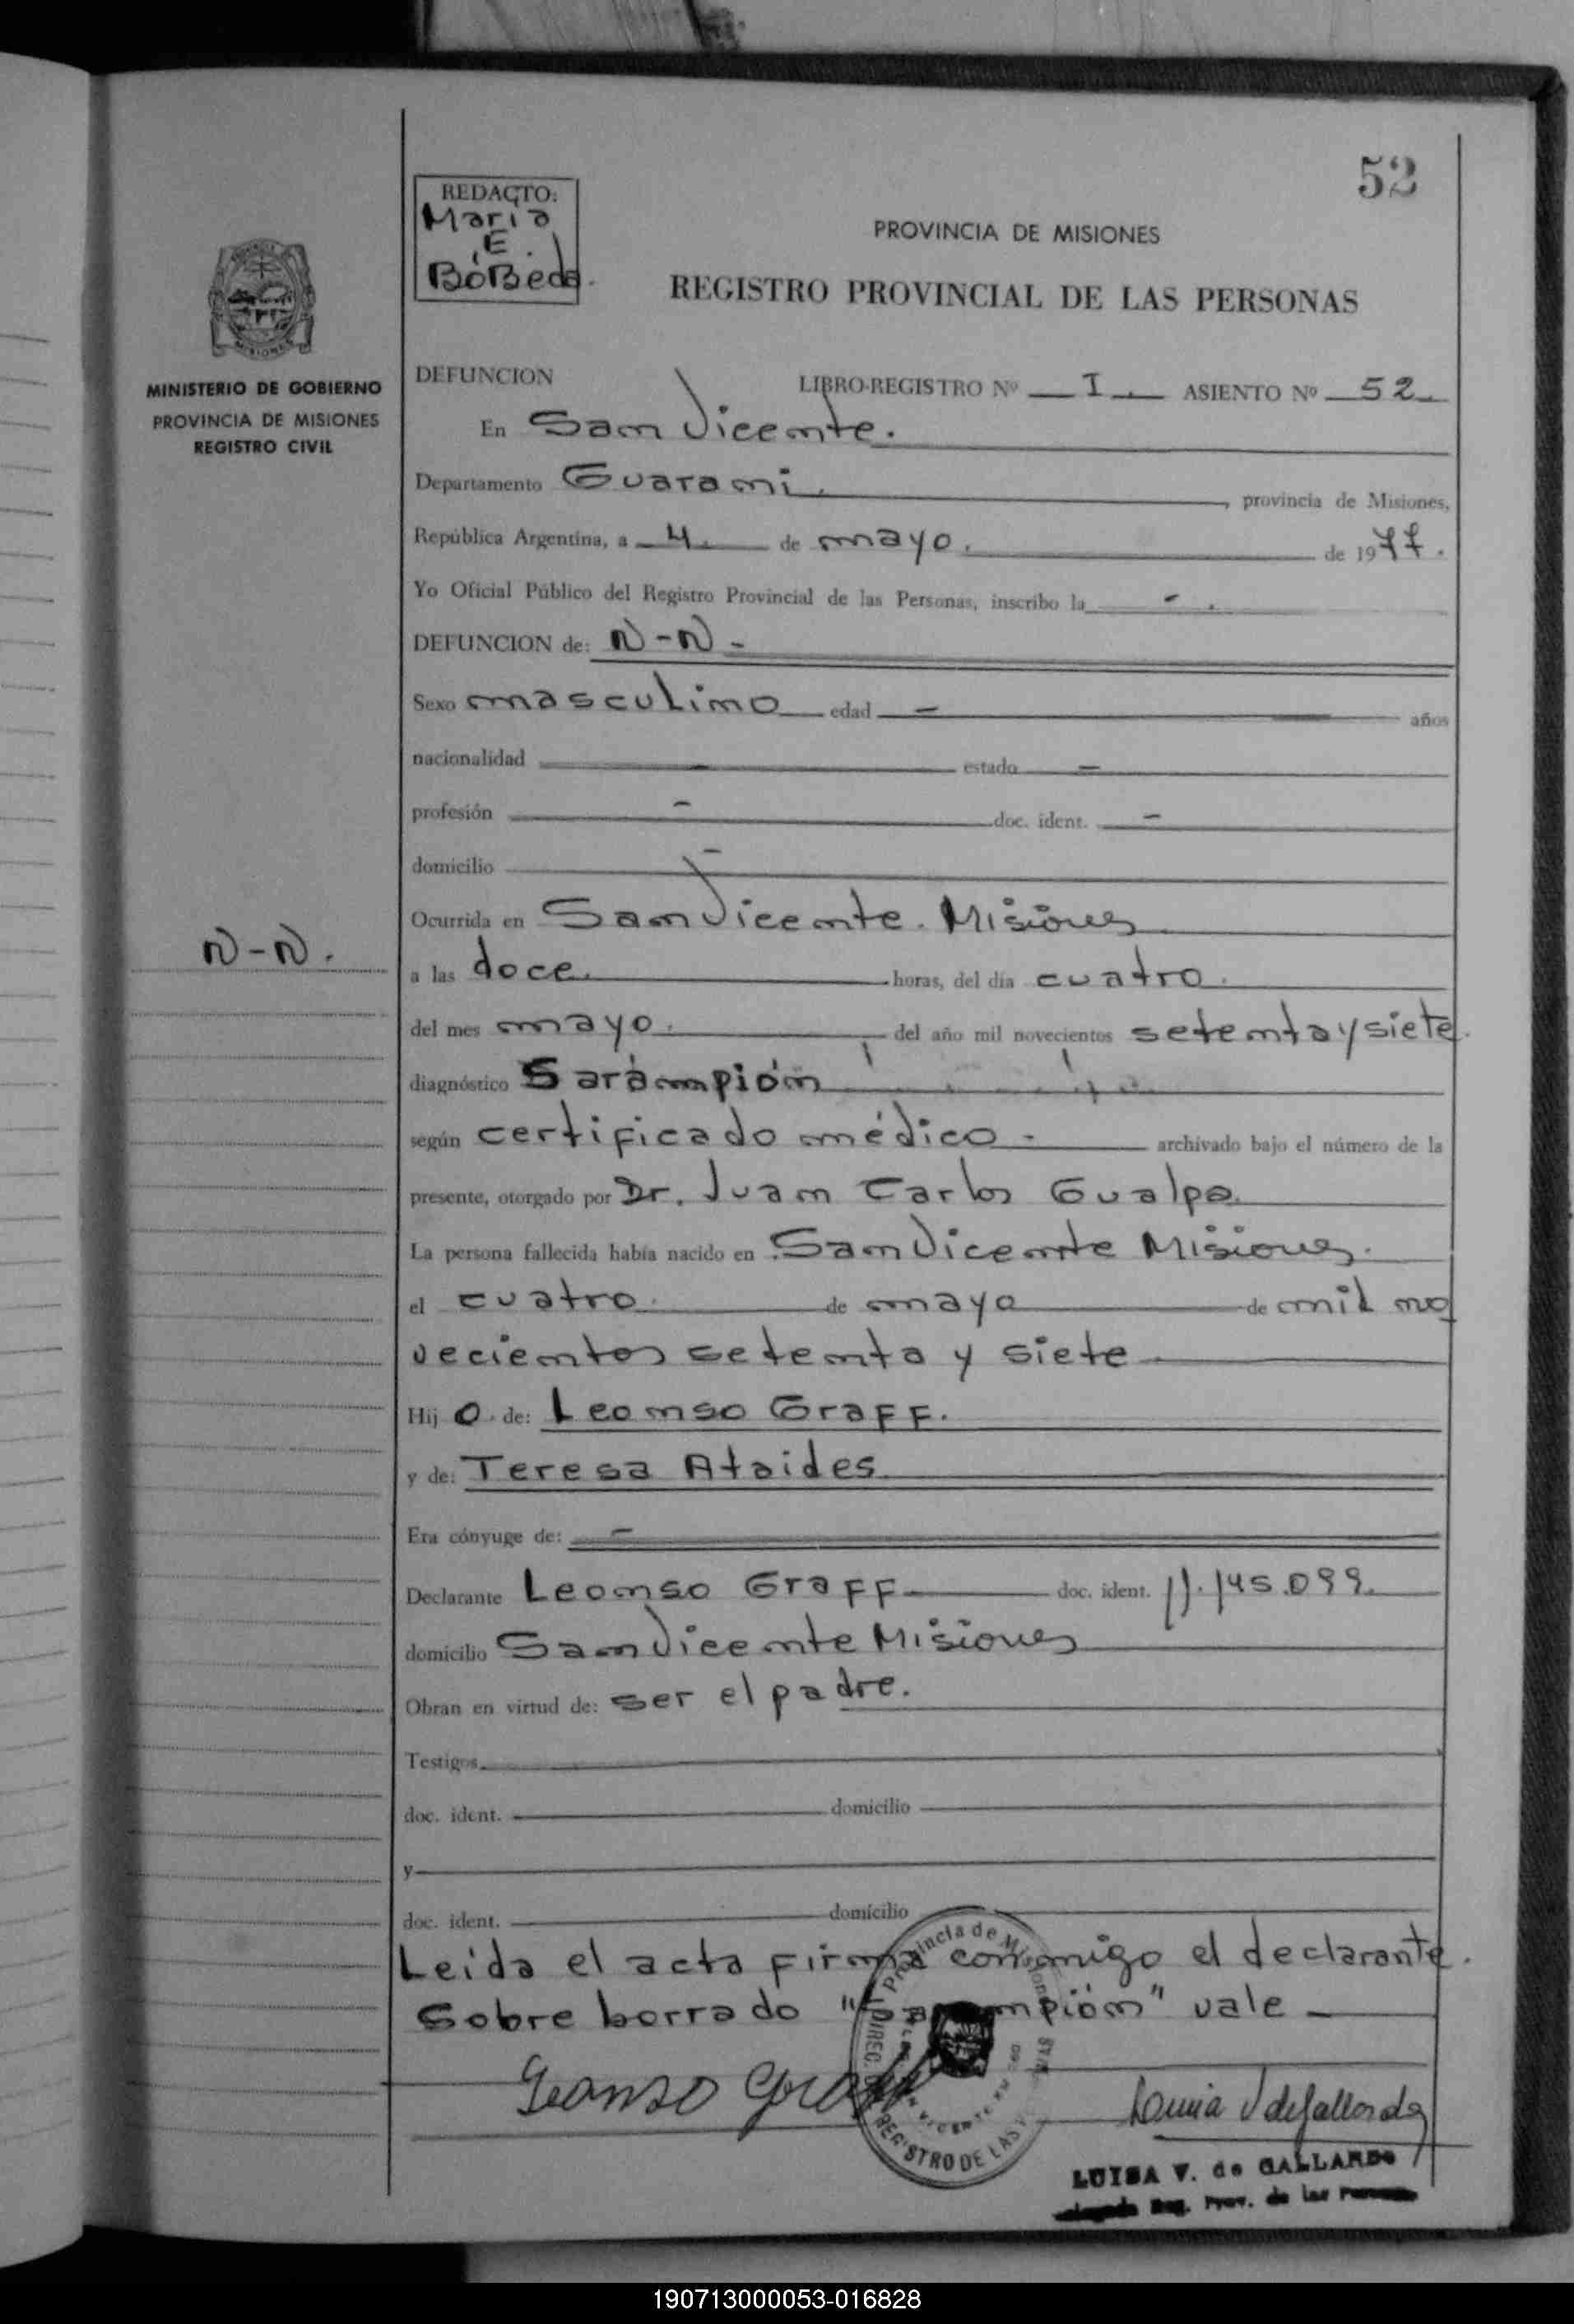 52
REDACTO:
Maria
E.
BóBeda.
PROVINCIA DE MISIONES
REGISTRO PROVINCIAL DE LAS PERSONAS
MISIONES
MINISTERIO DE GOBIERNO
PROVINCIA DE MISIONES
REGISTRO CIVIL
DEFUNCION LIBRO-REGISTRO Nº I. ASIENTO Nº 52
En San Vicente.
Departamento Guarani. , provincia de Misiones,
República Argentina, a 4. de mayo. de 1977.
Yo Oficial Público del Registro Provincial de las Personas, inscribo la - .
DEFUNCION de: N-N-
Sexo masculino edad - años
nacionalidad - estado -
profesión - doc. ident. -
domicilio -
Ocurrida en San Vicente. Misiones
N-N.
a las doce. horas, del día cuatro.
del mes mayo. del año mil novecientos setenta y siete.
diagnóstico Sarampión
según certificado médico - archivado bajo el número de la
presente, otorgado por Dr. Juan Carlos Gualpa.
La persona fallecida había nacido en San Vicente Misiones.
el cuatro. de mayo de mil no
vecientos setenta y siete
Hij o de: Leonso Graff.
y de: Teresa Ataides
Era cónyuge de: -
Declarante Leonso Graff doc. ident. 11.145.099.
domicilio San Vicente Misiones
Obran en virtud de: ser el padre.
Testigos
doc. ident. domicilio
y
doc. ident. domicilio
Leida el acta firma conmigo el declarante.
Sobre borrado "Sarampión" vale
Provincia de Misiones
REGISTRO DE LAS
Leonso Graff
LUISA V. de GALLARDO
Reg. Prov. de las Personas
190713000053-016828